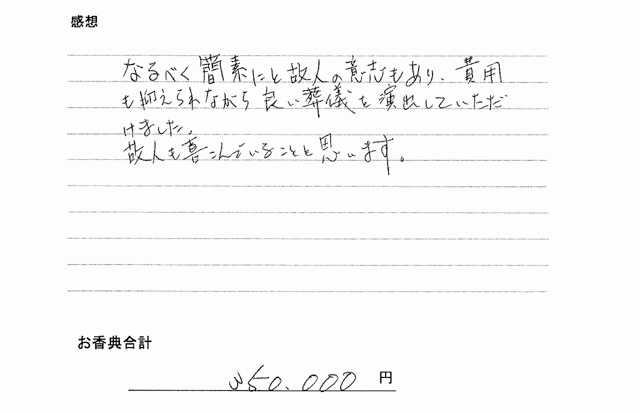 感想
なるべく簡素にと故人の意志もあり、費用
も抑えられながら良い葬儀を演出していただ
けました。
故人も喜こんでいることと思います。
お香典合計
350.000 円